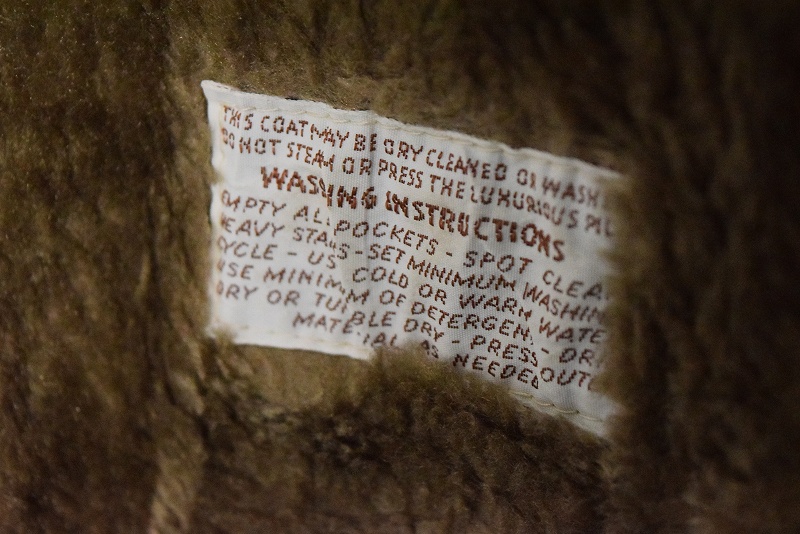 THIS COAT MAY BE DRY CLEANED OR WASH
DO NOT STEAM OR PRESS THE LUXURIOUS PIL
WASHING INSTRUCTIONS
EMPTY ALL POCKETS - SPOT CLEA
HEAVY STAINS - SET MINIMUM WASHIN
CYCLE - USE COLD OR WARM WATE
USE MINIMUM OF DETERGENT - DRI
DRY OR TUMBLE DRY - PRESS OUTE
MATERIAL AS NEEDED